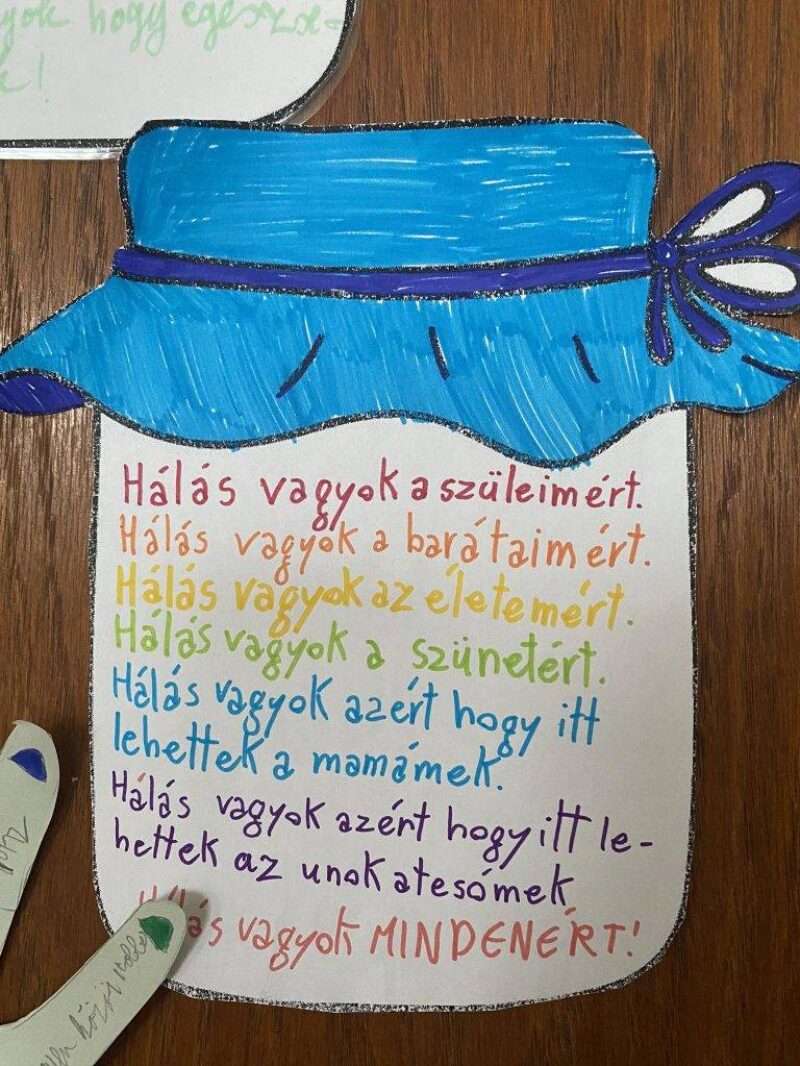 yok hogy egész-
k!
Hálás vagyok a szüleimért.
Hálás vagyok a barátaimért.
Hálás vagyok az életemért.
Hálás vagyok a szünetért.
Hálás vagyok azért hogy itt
lehettek a mamámek.
Hálás vagyok azért hogy itt le-
hettek az unokatesómek
Hálás vagyok MINDENÉRT!